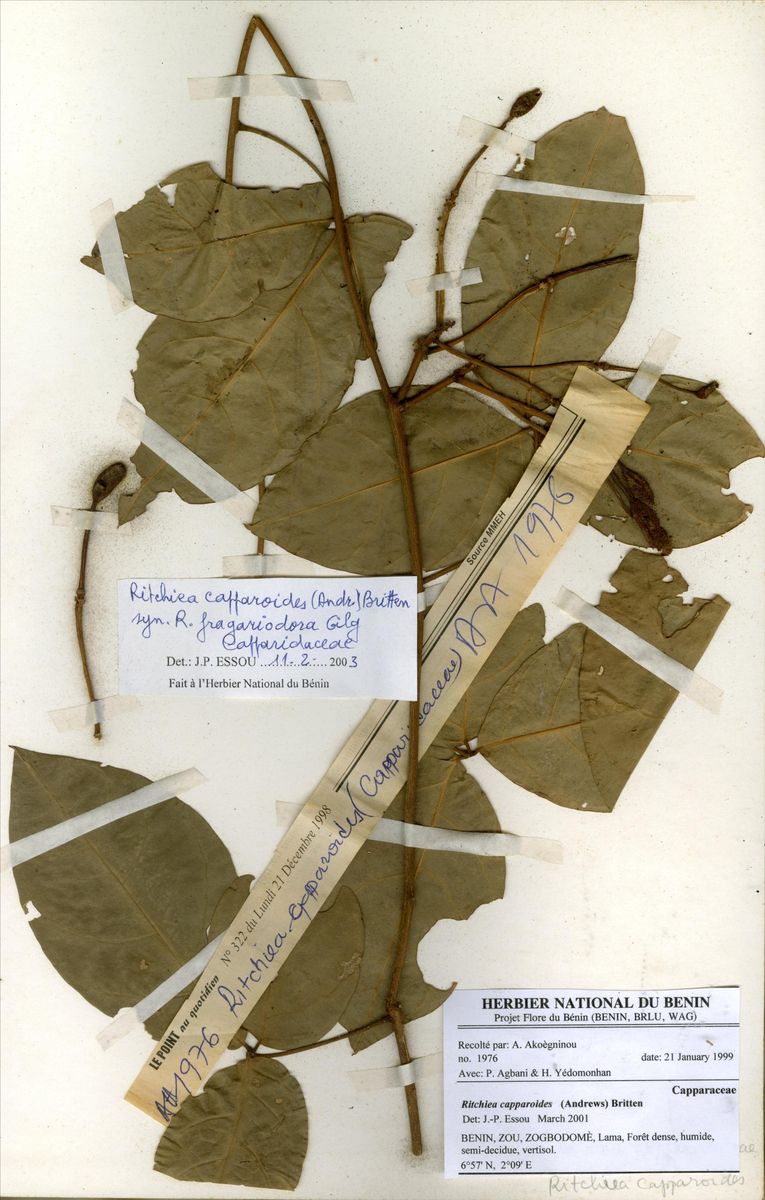 Ritchiea capparoides (Andr.) Britten
syn. R. fragariodora Gilg
Capparidaceae
Det.: J.P. ESSOU 11-2-2003
Fait à l'Herbier National du Bénin
Source MMEH
LE POINT au quotidien N° 322 du Lundi 21 Décembre 1998
AA 1976 Ritchiea capparoides (Capparidaceae) AA 1976
HERBIER NATIONAL DU BENIN
Projet Flore du Bénin (BENIN, BRLU, WAG)
Recolté par: A. Akoègninou
no. 1976 date: 21 January 1999
Avec: P. Agbani & H. Yédomonhan
Capparaceae
Ritchiea capparoides (Andrews) Britten
Det: J.-P. Essou March 2001
BENIN, ZOU, ZOGBODOMÈ, Lama, Forêt dense, humide,
semi-decidue, vertisol.
6°57' N, 2°09' E
Ritchiea capparoides